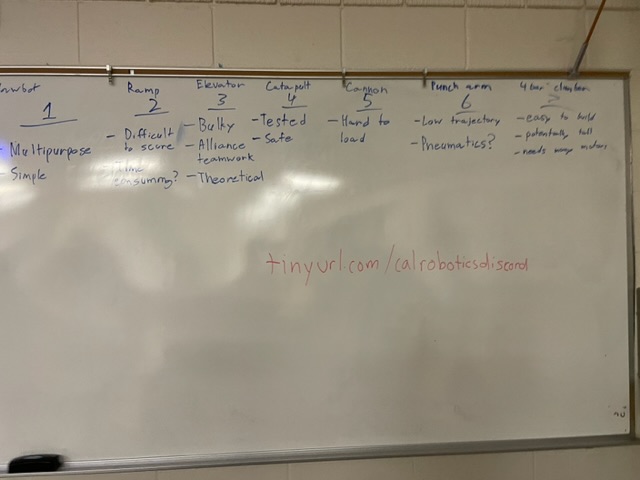 Ramp
2
- Difficult
to score
- Time
consuming?
Elevator
3
- Bulky
- Alliance
teamwork
- Theoretical
Catapult
4
- Tested
- Safe
Cannon
5
- Hard to
load
Punch arm
6
- Low trajectory
- Pneumatics?
4 bar climber
7
- easy to build
- potentially tall
- needs many motors
1
- Multipurpose
- Simple
tinyurl.com/calroboticsdiscord